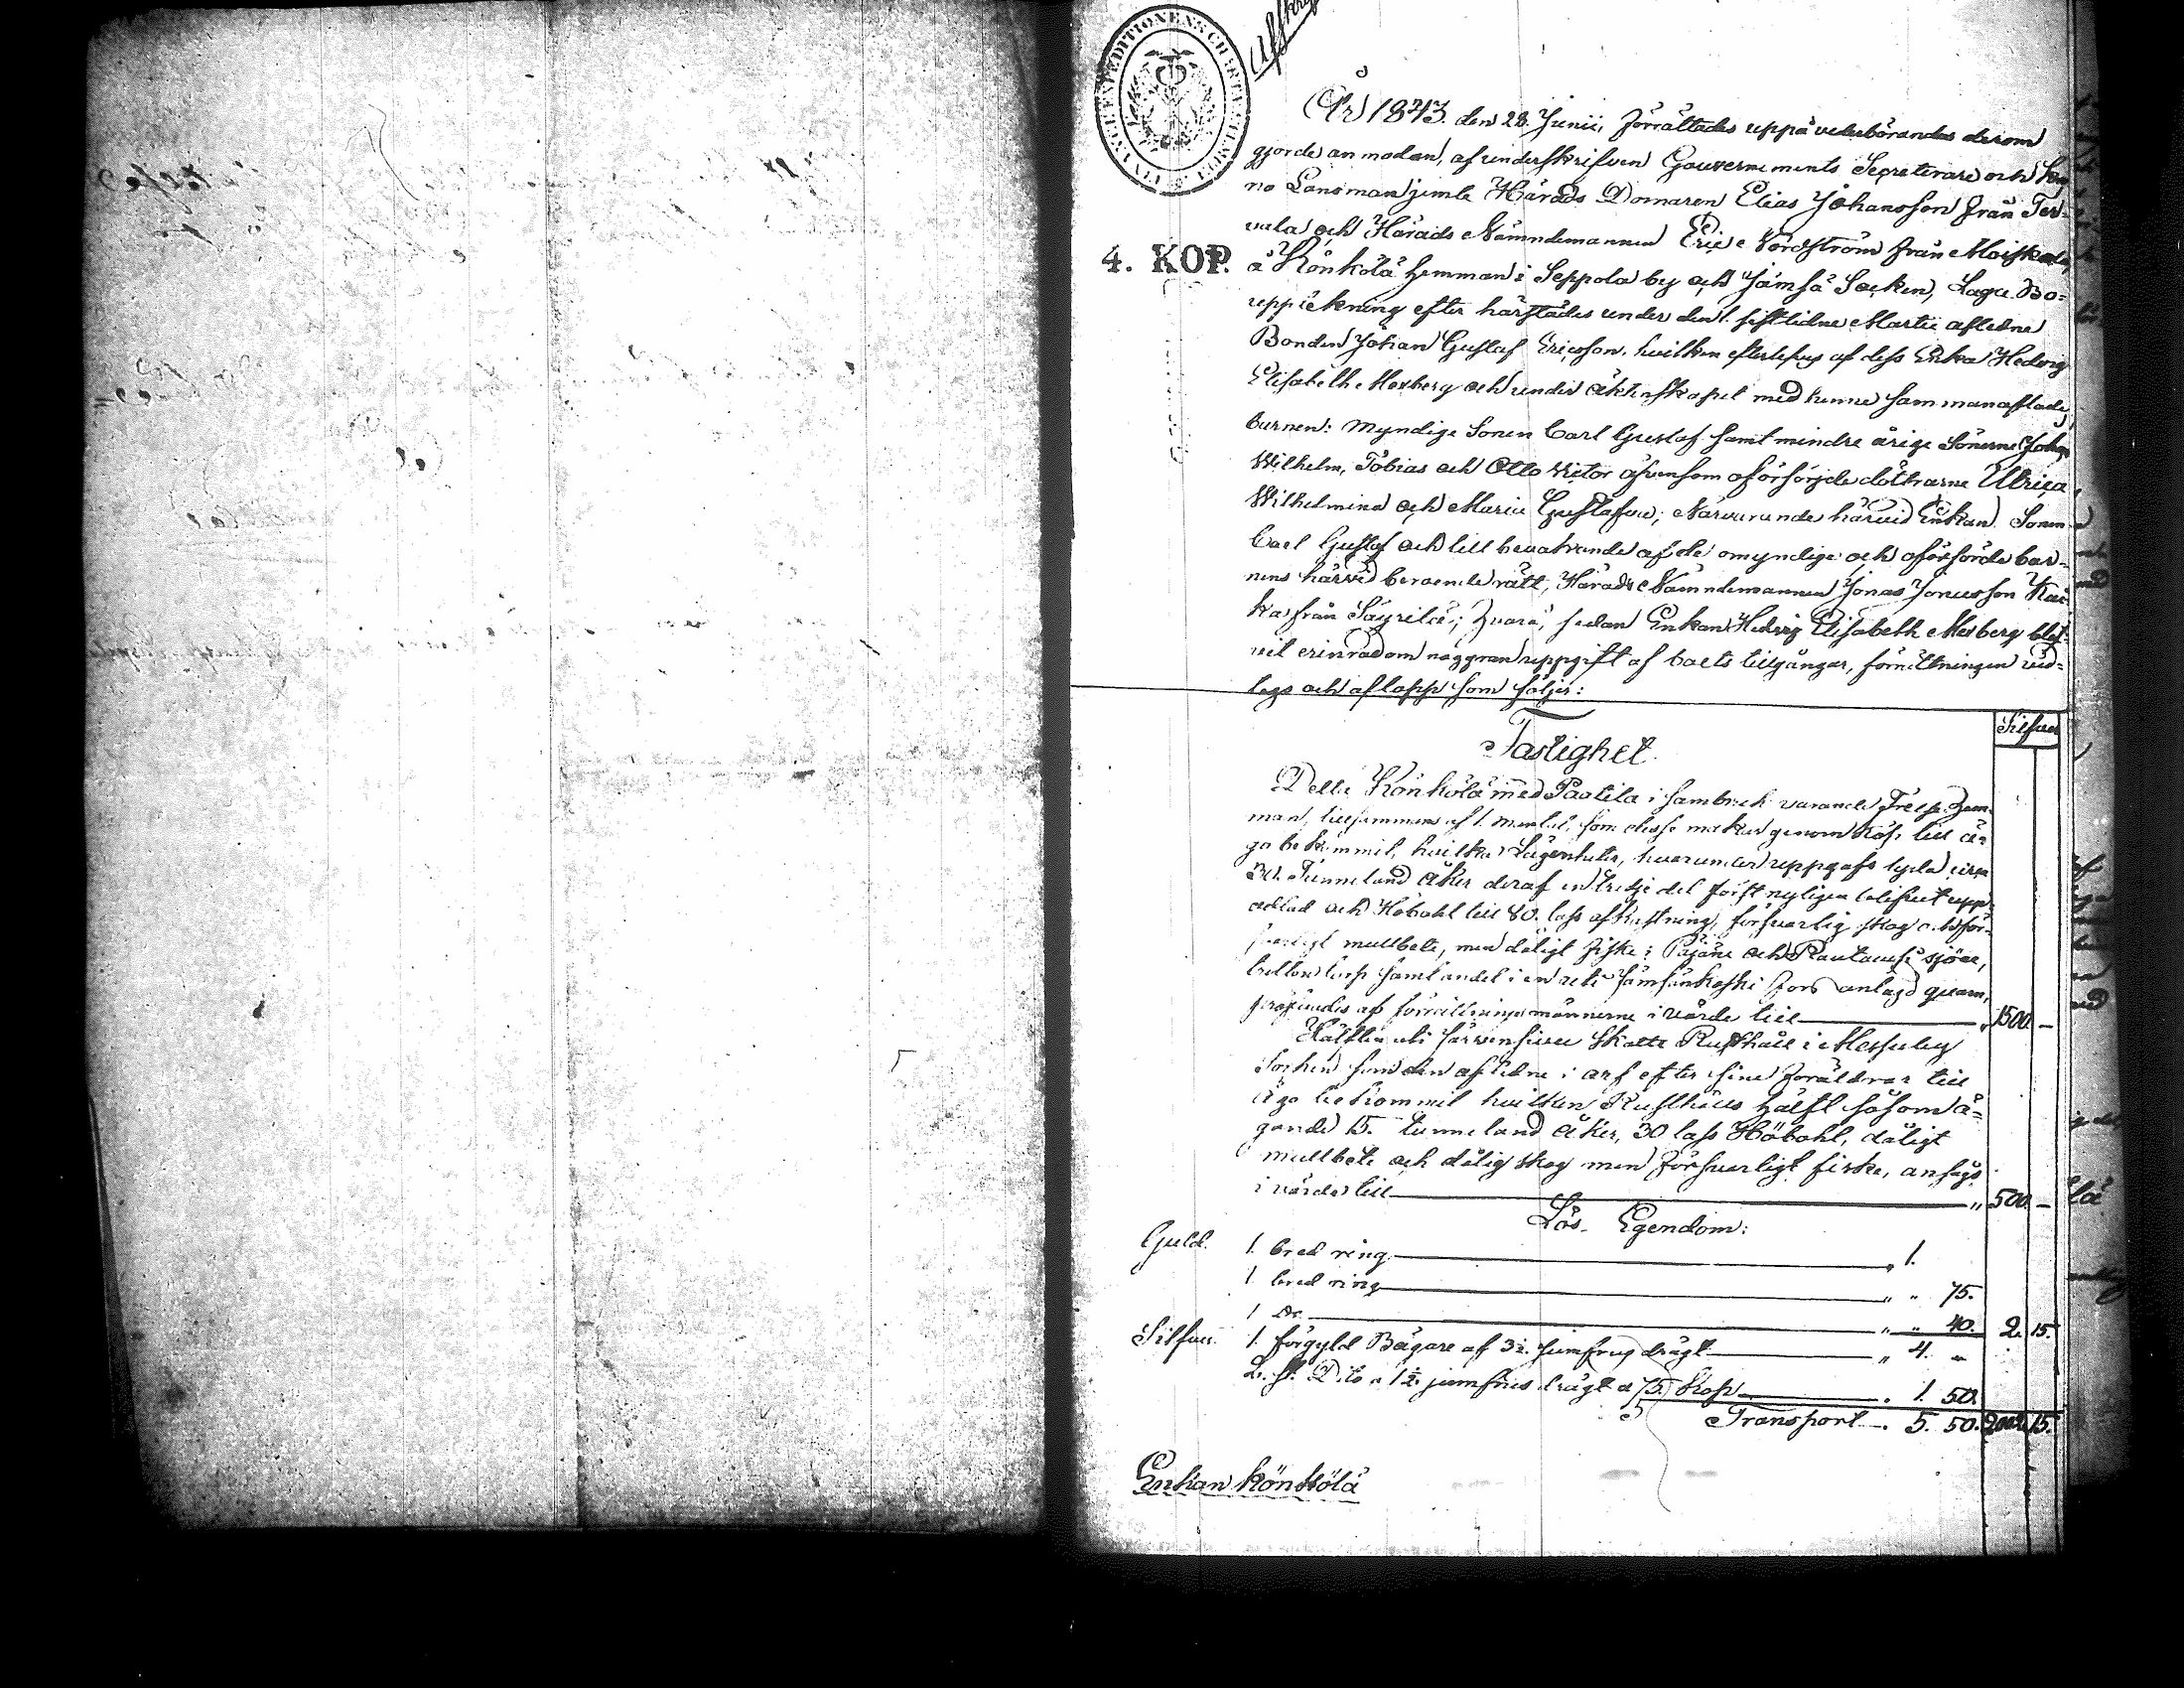 Afskrift
År 1843. den 28. Junii, förrättades uppå vederbörandes derom
gjorde anmodan, af underskrifven Gouvernements Secreterare och Kro
no Länsman jemte Härads Domaren Elias Johansson från Ter-
vala och Härads Nämndemannen Eric Nordström från Moiskala,
4. KOP.
å Könkölä hemman i Seppola by och Jämsä Socken, Laga Bo-
uppteckning efter härstädes under den 1. sistlidne Martii aflidne
Bonden Johan Gustaf Ericsson, hvilken efterlefves af dess Enka Hedvig
Elisabeth Moxberg och under äktenskapet med henne sammanaflade
barnen: Myndige Sonen Carl Gustaf samt minderårige Sönerne Johan
Wilhelm, Tobias och Otto Victor äfvensom oförsörjde döttrarne Ulrica
Wilhelmina och Maria Gustafva; Närvarande härvid Enkan, Sonen
Carl Gustaf och till bevakande af de omyndige och oförsörde bar-
nens härvid beroende rätt, Härads Nämndemannen Jonas Jonasson
från Säyrilä; hvarå, sedan Enkan Hedvig Elisabeth Moxberg blif-
vit erinrad om noggran uppgift af boets tillgångar, förrättningen vid-
togs och aflopp som följer:
Silfver
Fastighet.
Detta Könkölä med Paatila i sambruk varande Frelse hem-
man, tillsammans af 1. mantal, som desse makar genom köp till ä-
ga bekommit, hvilka Lägenheter, hvarunder uppgafs lyda cirka
30. Tunneland åker deraf en tredje del först nyligen blifvit upp-
odlad och Höbohl till 80. lass afkastning, försvarlig skog och för-
svarligt mullbete, men dåligt fiske i Päjäne och sjöar,
tretton torp samt andel i en uti Jämsänkoski fors anlagd qvarn,
pröfvades af förrättningsmännerne i värde till " 1500. –
Hälften uti Järvensivu Skatte Rusthåll i Messuby
Socken som den aflidne i arf efter sine föräldrar till
äga bekommit hvilken Rusthålls hälft såsom ä-
gande 15. tunneland åker, 30 lass Höbohl, dåligt
mullbete och dålig skog men försvarligt fiske, ansågs
i värde till " 500. –
Lös Egendom:
Guld. 1. bred ring " 1.
1 bred ring " " 75.
1 Do " " 40. 2. 15.
Silfver. 1. förgyld Bägare af 3½. jumfrus drägt " 4. "
2. st. Dito " 1½. jumfrus drägt a 75. kop " 1. 50.
Transport " 5. 50. 2002. 15.
Enkan Könkölä